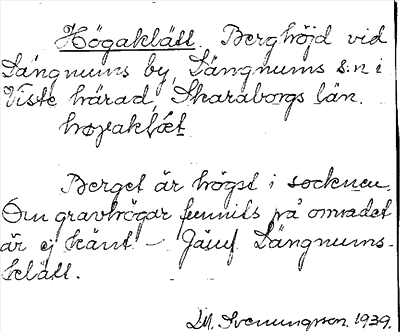 Högaklätt. Berghöjd vid
Längnums by, Längnums s:n i
Viste härad, Skaraborgs län.
høgaklǽt

Berget är högst i socknen.
Om gravhögar funnits på området
är ej känt – Jämf Längnums-
klätt.
M. Svenungson. 1939.